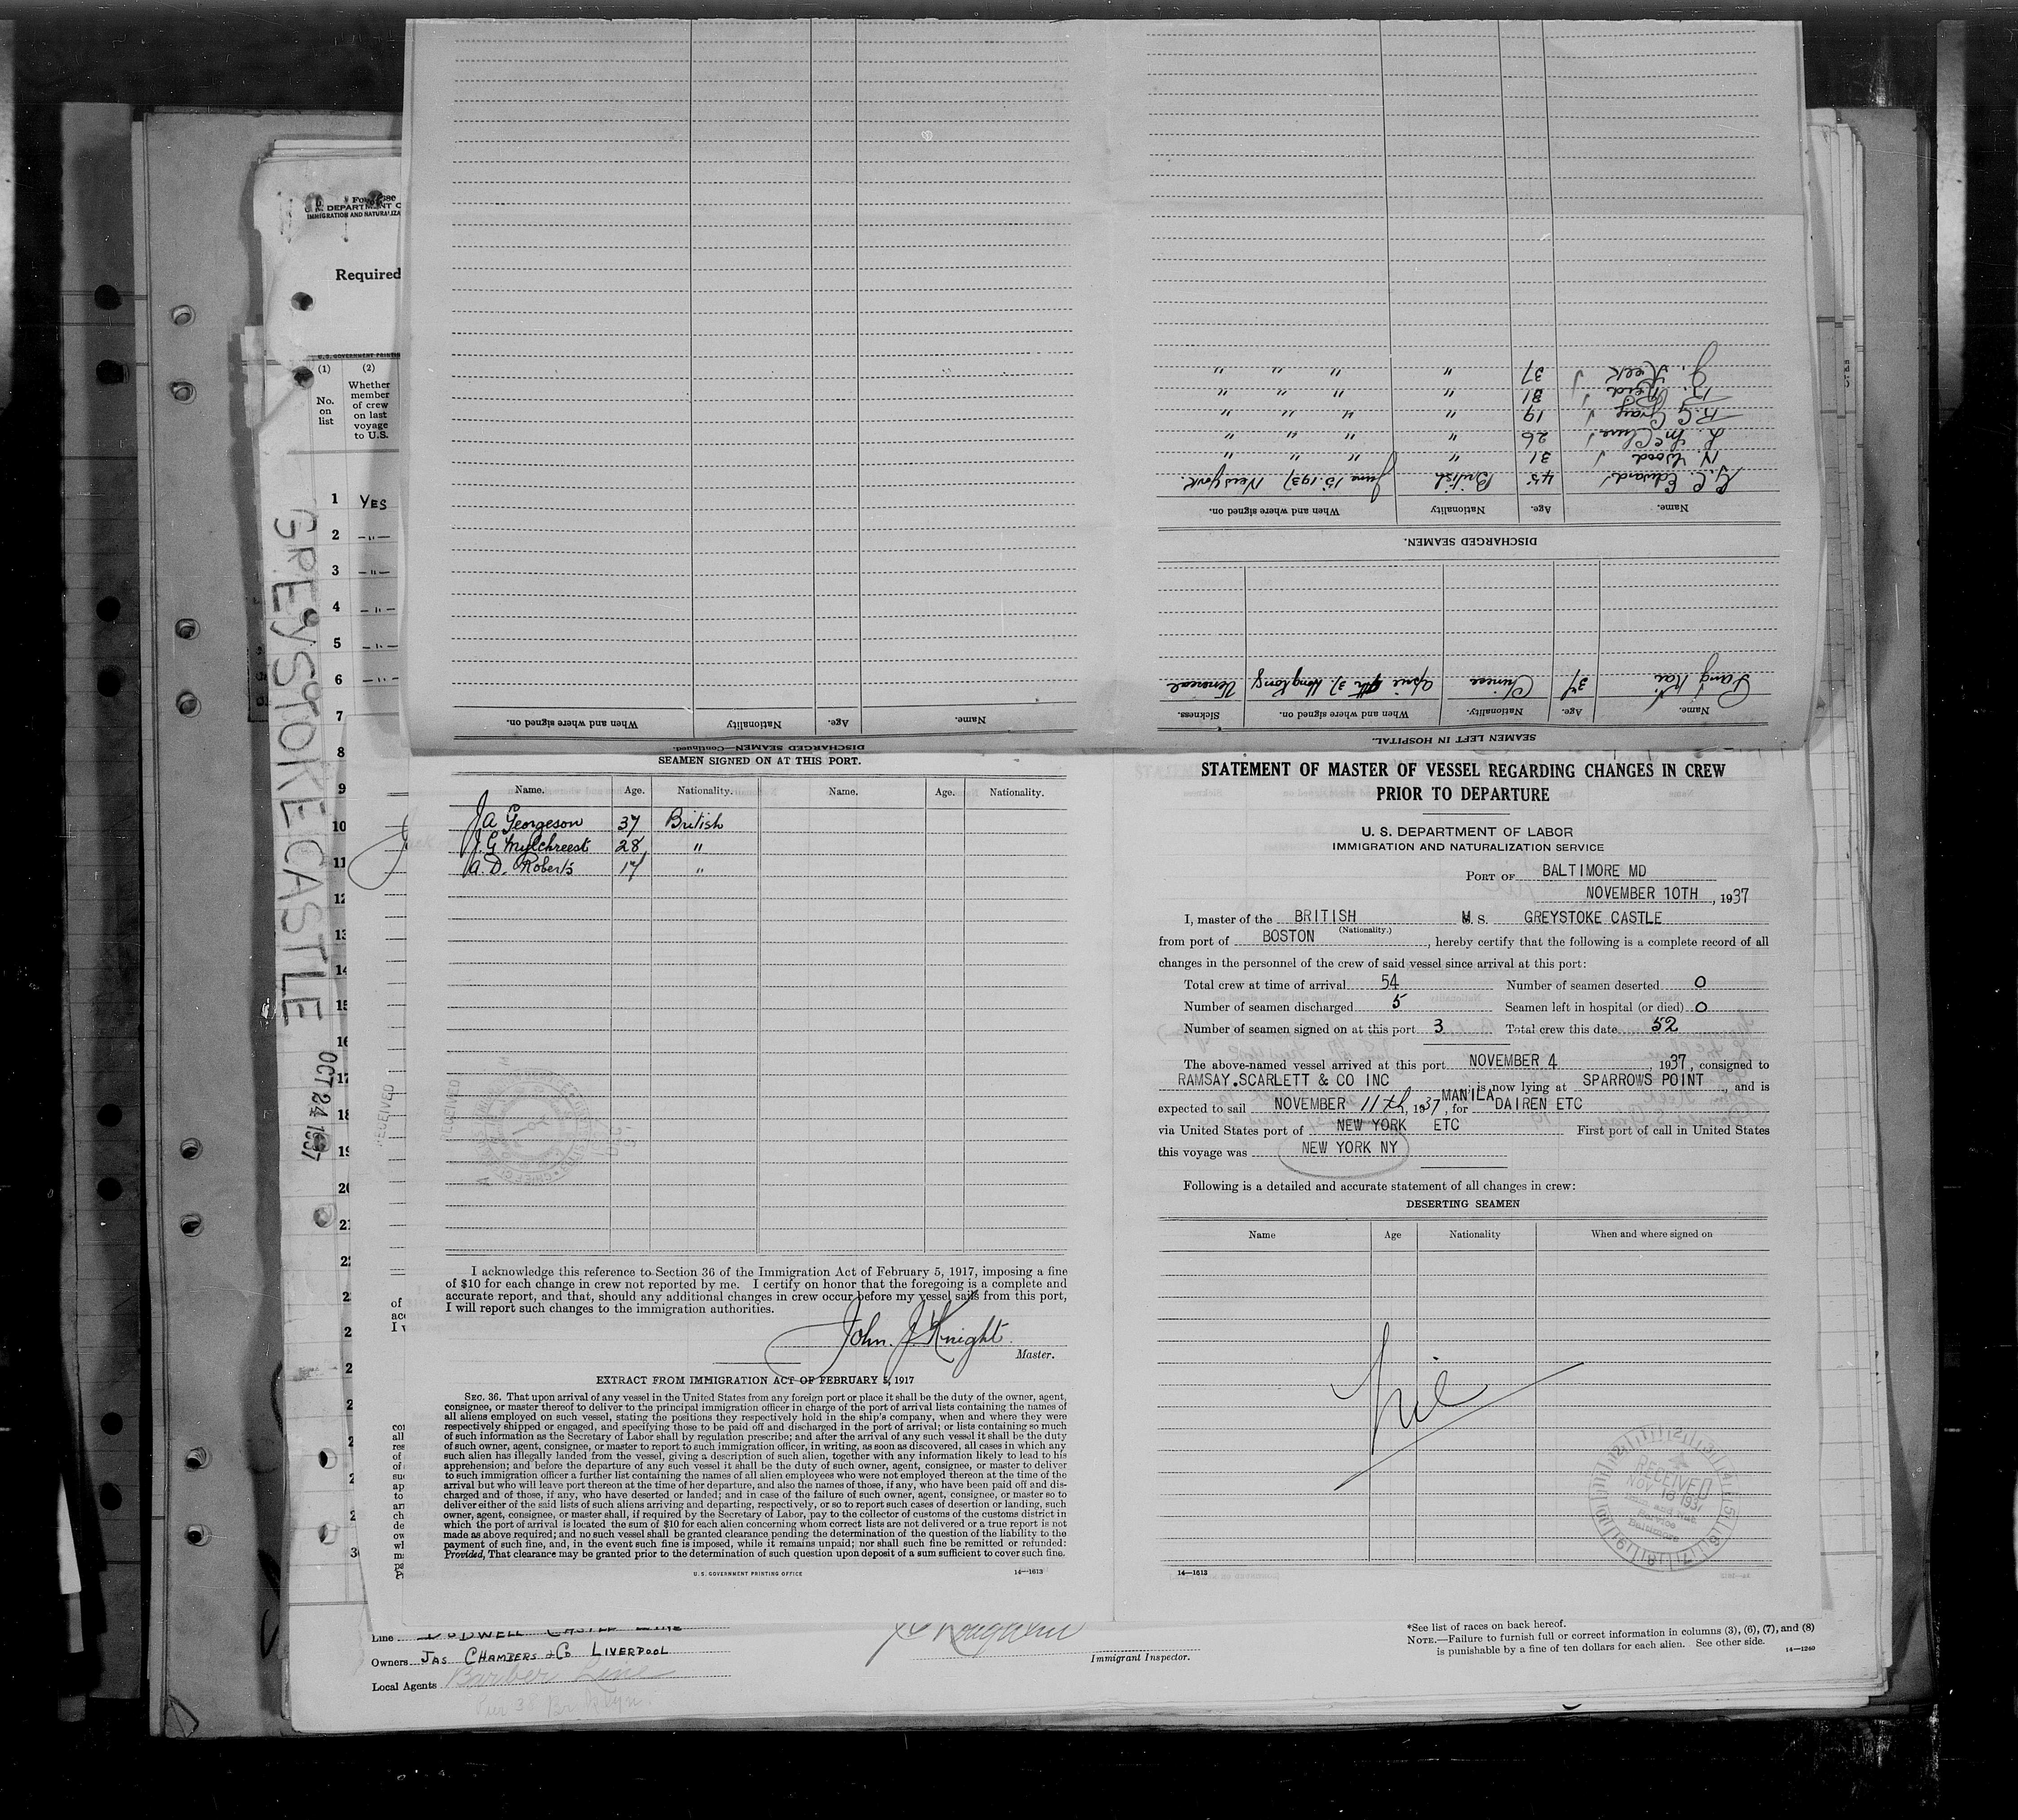 Required
U. S. GOVERNMENT PRINTIN
(1) (2)
No. on list
Whether member of crew on last voyage to U.S.
1 YES
2 -"-
3 -"-
4 -"-
5 -"-
6 -"-
7
8
9
10
11
12
GREYSTOKE CASTLE
OCT 24 1937
SEAMEN LEFT IN HOSPITAL.
Name. Age. Nationality. When and where signed on. Sickness.
37 Chinese Hongkong Venereal
DISCHARGED SEAMEN.
Name. Age. Nationality When and where signed on.
G.C. Edwards 45 British June 15. 1937 New York.
N. Wood 31 " " " "
L. McClune 26 " " " "
R.G. Gray 19 " " " "
Reid 18 " " " "
J. Keek 37 " " " "
DISCHARGED SEAMEN—Continued.
Name. Age. Nationality When and where signed on.
SEAMEN SIGNED ON AT THIS PORT.
Name. Age. Nationality. Name. Age. Nationality.
J A Georgeson 37 British
J. G Mylchreest 28 "
A. D. Roberts 17 "
I acknowledge this reference to Section 36 of the Immigration Act of February 5, 1917, imposing a fine
of $10 for each change in crew not reported by me. I certify on honor that the foregoing is a complete and
accurate report, and that, should any additional changes in crew occur before my vessel sails from this port,
I will report such changes to the immigration authorities.
John. J Knight
Master.
EXTRACT FROM IMMIGRATION ACT OF FEBRUARY 5, 1917
SEC. 36. That upon arrival of any vessel in the United States from any foreign port or place it shall be the duty of the owner, agent,
consignee, or master thereof to deliver to the principal immigration officer in charge of the port of arrival lists containing the names of
all aliens employed on such vessel, stating the positions they respectively hold in the ship's company, when and where they were
respectively shipped or engaged, and specifying those to be paid off and discharged in the port of arrival; or lists containing so much
of such information as the Secretary of Labor shall by regulation prescribe; and after the arrival of any such vessel it shall be the duty
of such owner, agent, consignee, or master to report to such immigration officer, in writing, as soon as discovered, all cases in which any
such alien has illegally landed from the vessel, giving a description of such alien, together with any information likely to lead to his
apprehension; and before the departure of any such vessel it shall be the duty of such owner, agent, consignee, or master to deliver
to such immigration officer a further list containing the names of all alien employees who were not employed thereon at the time of the
arrival but who will leave port thereon at the time of her departure, and also the names of those, if any, who have been paid off and dis-
charged and of those, if any, who have deserted or landed; and in case of the failure of such owner, agent, consignee, or master so to
deliver either of the said lists of such aliens arriving and departing, respectively, or so to report such cases of desertion or landing, such
owner, agent, consignee, or master shall, if required by the Secretary of Labor, pay to the collector of customs of the customs district in
which the port of arrival is located the sum of $10 for each alien concerning whom correct lists are not delivered or a true report is not
made as above required; and no such vessel shall be granted clearance pending the determination of the question of the liability to the
payment of such fine, and, in the event such fine is imposed, while it remains unpaid; nor shall such fine be remitted or refunded:
Provided, That clearance may be granted prior to the determination of such question upon deposit of a sum sufficient to cover such fine.
U. S. GOVERNMENT PRINTING OFFICE 14—1613
STATEMENT OF MASTER OF VESSEL REGARDING CHANGES IN CREW
PRIOR TO DEPARTURE
U. S. DEPARTMENT OF LABOR
IMMIGRATION AND NATURALIZATION SERVICE
PORT OF BALTIMORE MD
NOVEMBER 10TH, 1937
I, master of the BRITISH M. S. GREYSTOKE CASTLE
(Nationality.)
from port of BOSTON, hereby certify that the following is a complete record of all
changes in the personnel of the crew of said vessel since arrival at this port:
Total crew at time of arrival 54 Number of seamen deserted 0
Number of seamen discharged 5 Seamen left in hospital (or died) 0
Number of seamen signed on at this port 3 Total crew this date 52
The above-named vessel arrived at this port NOVEMBER 4, 1937, consigned to
RAMSAY.SCARLETT & CO INC; is now lying at SPARROWS POINT, and is
expected to sail NOVEMBER 11th, 1937, for MANILA DAIREN ETC
via United States port of NEW YORK ETC First port of call in United States
this voyage was NEW YORK NY
Following is a detailed and accurate statement of all changes in crew:
DESERTING SEAMEN
Name Age Nationality When and where signed on
Nil
RECEIVED
NOV 10 1937
Baltimore
14—1613
Line DODWELL CASTLE LINE
Owners JAS CHAMBERS & Co LIVERPOOL
Local Agents Barber Line
Pier 38 Brooklyn.
Immigrant Inspector.
*See list of races on back hereof.
NOTE.—Failure to furnish full or correct information in columns (3), (6), (7), and (8)
is punishable by a fine of ten dollars for each alien. See other side. 14—1240